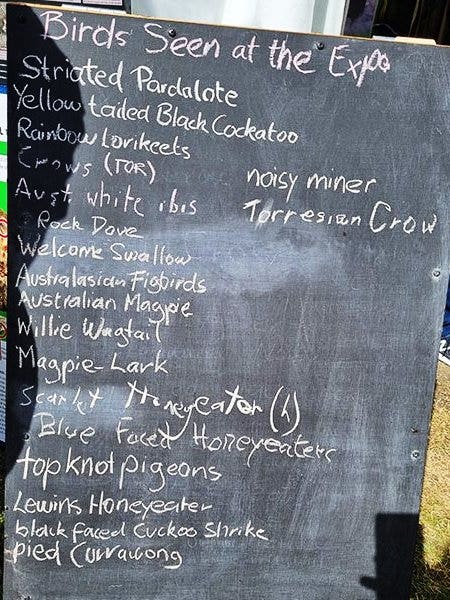 Birds Seen at the Expo
Striated Pardalote
Yellow tailed Black Cockatoo
Rainbow Lorikeets
Crows (TOR)
Aust. white ibis
Rock Dove
Welcome Swallow
Australasian Figbirds
Australian Magpie
Willie Wagtail
Magpie-Lark
Scarlet Honeyeater (h)
Blue Faced Honeyeaters
topknot pigeons
Lewins Honeyeater
black faced Cuckoo Shrike
pied Currawong
noisy miner
Torresian Crow